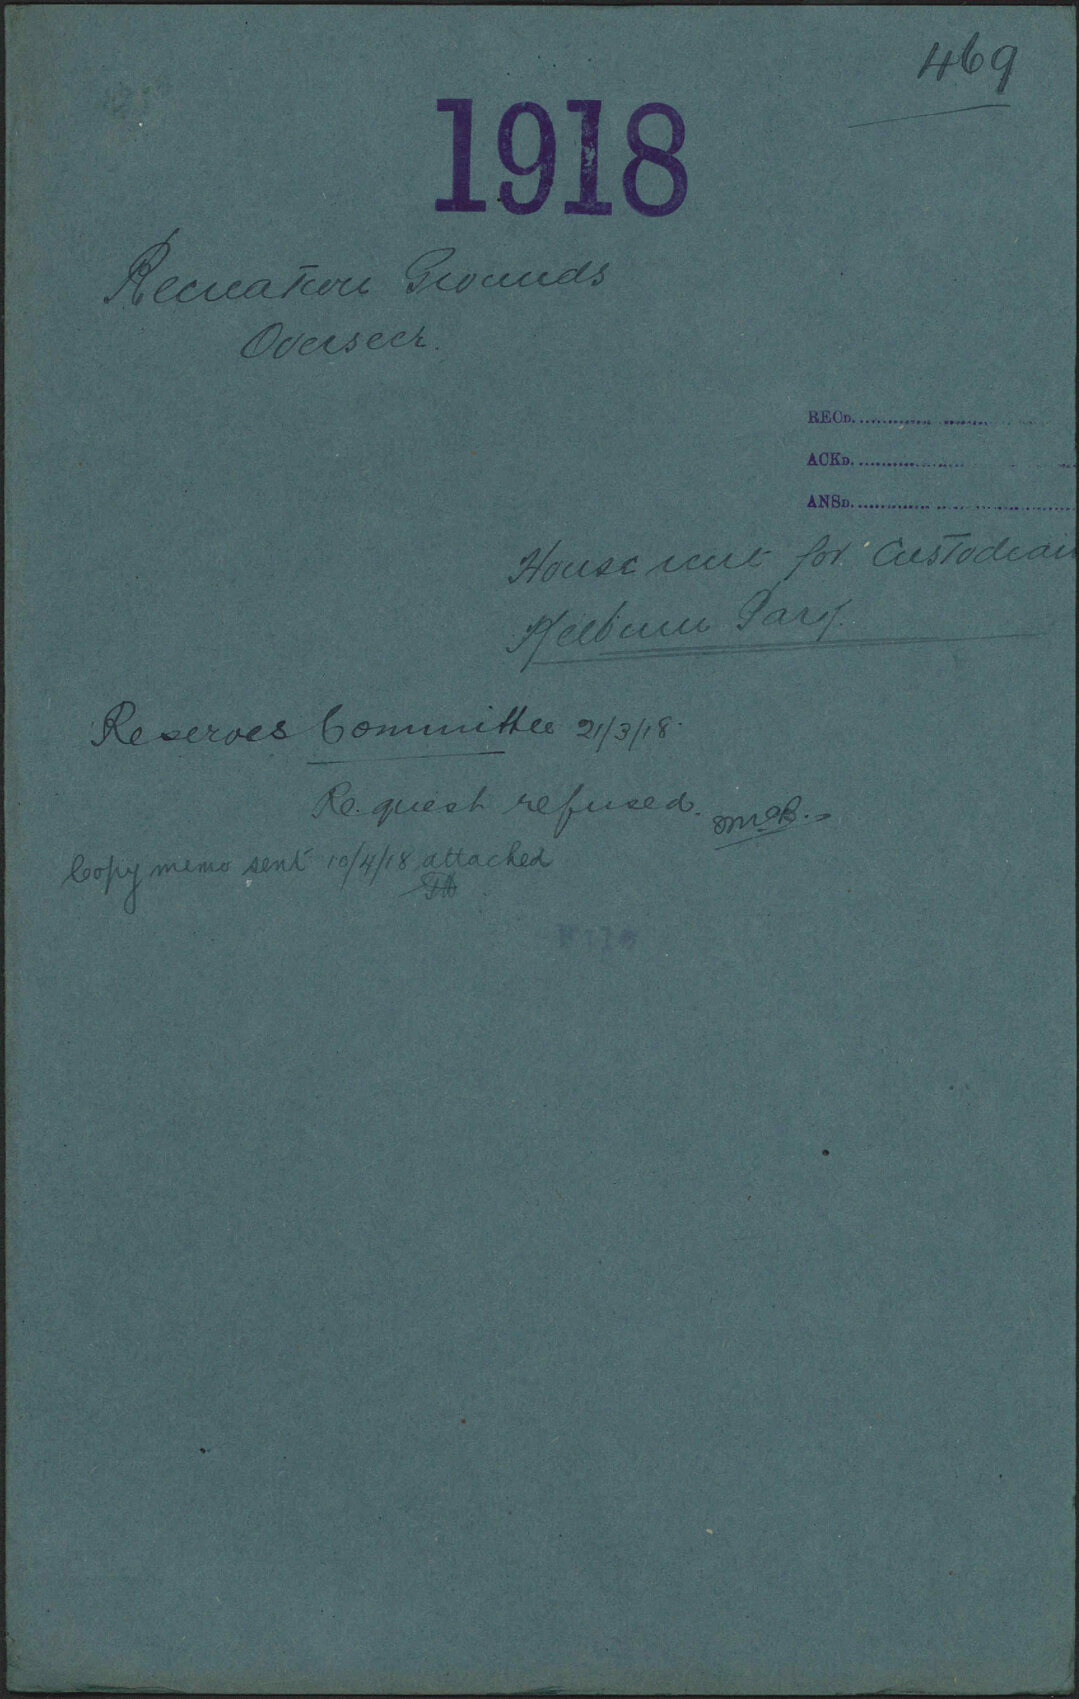 469
1918
Recreation Grounds
Overseer.
RECD.
ACKD.
ANSD.
House rent for Custodian
Kelburn Park.
Reserves Committee 21/3/18.
Request refused.
Copy memo sent 10/4/18 attached
File